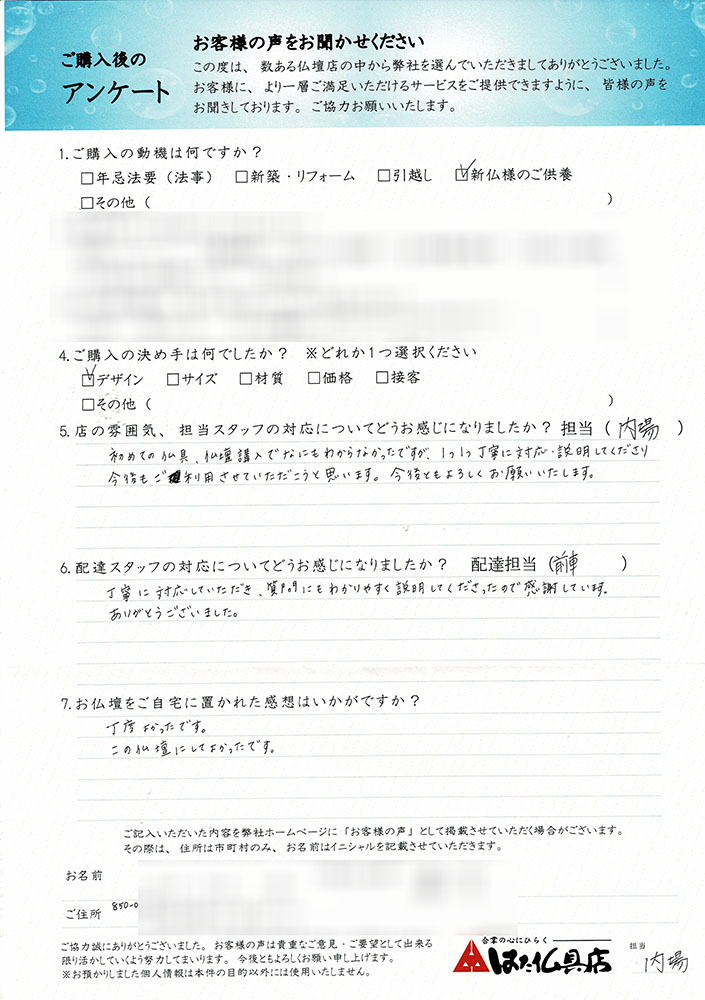 ご購入後の
アンケート
お客様の声をお聞かせください
この度は、数ある仏壇店の中から弊社を選んでいただきましてありがとうございました。
お客様に、より一層ご満足いただけるサービスをご提供できますように、皆様の声を
お聞きしております。ご協力お願いいたします。
1.ご購入の動機は何ですか？
□年忌法要（法事） □新築・リフォーム □引越し ☑新仏様のご供養
□その他（ ）
4.ご購入の決め手は何でしたか？ ※どれか1つ選択ください
☑デザイン □サイズ □材質 □価格 □接客
□その他（ ）
5.店の雰囲気、担当スタッフの対応についてどうお感じになりましたか？担当（内場）
初めての仏具、仏壇購入でなにもわからなかったですが、1つ1つ丁寧に対応・説明してくださり
今後もご利用させていただこうと思います。今後ともよろしくお願いいたします。
6.配達スタッフの対応についてどうお感じになりましたか？ 配達担当（前車）
丁寧に対応していただき、質問にもわかりやすく説明してくださったので感謝しています。
ありがとうございました。
7.お仏壇をご自宅に置かれた感想はいかがですか？
丁度よかったです。
この仏壇にしてよかったです。
ご記入いただいた内容を弊社ホームページに「お客様の声」として掲載させていただく場合がございます。
その際は、住所は市町村のみ、お名前はイニシャルを記載させていただきます。
お名前
ご住所 850-0
ご協力誠にありがとうございました。お客様の声は貴重なご意見・ご要望として出来る
限り活かしていくよう努力してまいります。今後ともよろしくお願い申し上げます。
※お預かりしました個人情報は本件の目的以外には使用いたしません。
合掌の心にひらく
はた仏具店
担当
内場